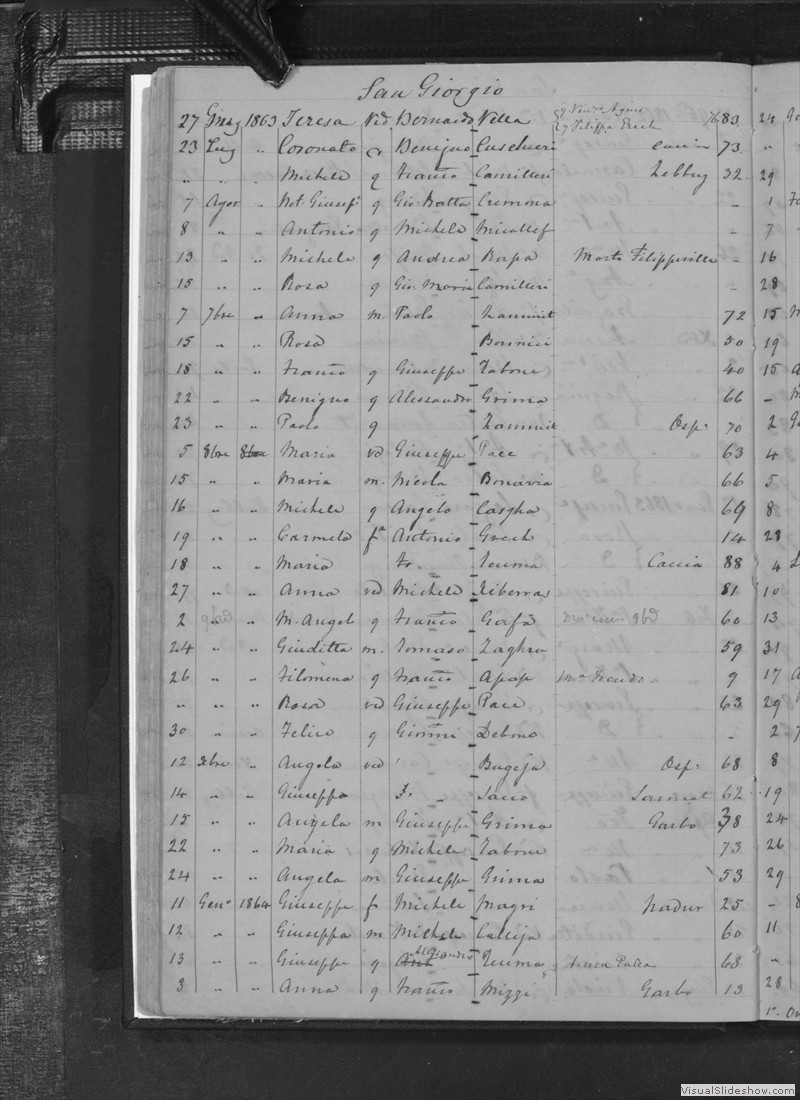 San Giorgio
27 Giug 1863 Teresa Vid. Bernardo Villa 83 24
23 Lug " Coronato Benigno Cuschieri 73 "
" " " Michele q Franco Camilleri Zebbug 32 29
7 Agos " Not. Giusep q Gio. Batta Cremona - 1
8 " " Antonio q Michele Micallef - 7
13 " " Michele q Andrea Morto Filippeville - 16
15 " " Rosa q Gio. Maria Camilleri - 28
7 7bre " Anna m. Paolo Zammit 72 15
15 " " Rosa Bonnici 50 19
18 " " Franco q Giuseppe Tabone 40 15
22 " " Benigno q Alessandro Grima 66 -
23 " " Paolo q Zammit Osp. 70 2
5 8bre Maria vd Giuseppe Pace 63 4
15 " " Maria m. Nicola Bonavia 66 5
16 " " Michele q Angelo 69 8
19 " " Carmela fa Antonio Grech 14 28
18 " " Maria Teuma Caccia 88 4
27 " " Anna ved Michele Xiberras 81 10
2 " " M. Angel q Franco 60 13
24 " " Giuditta m. Tomaso 59 31
26 " " Filomena q Franco Apap 9 17
" " " Rosa ved Giuseppe Pace 63 29
30 " " Felice q Giovnni Debono - 2
12 Xbre " Angela ved Bugeja Osp. 68 8
14 " " Giuseppa Sacco Sannat 62 19
15 " " Angela m Giuseppe Grima Garbo 38 24
22 " " Maria q Michele Tabone 73 26
24 " " Angela m Giuseppe Grima 53 29
11 Geno 1864 Giuseppe f Michele Magri Nadur 25 -
12 " " Giuseppa m Michele Calleja 60 11
13 " " Giuseppe q Alessandro Teuma 68 "
3 " " Anna q Franco Mizzi Garbo 13 28
VisualSlideshow.com